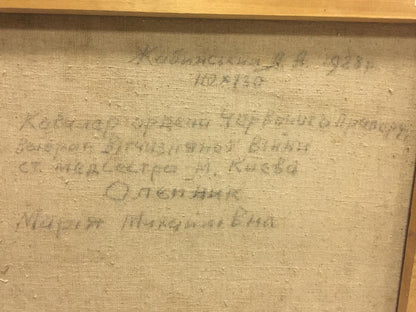 Жабинський А. А. 1928 г.
110×130
Кавалер ордена Червоного Прапору,
ветеран вітчизняної війни
ст. медсестра м. Києва
Олейник
Марія Михайлівна